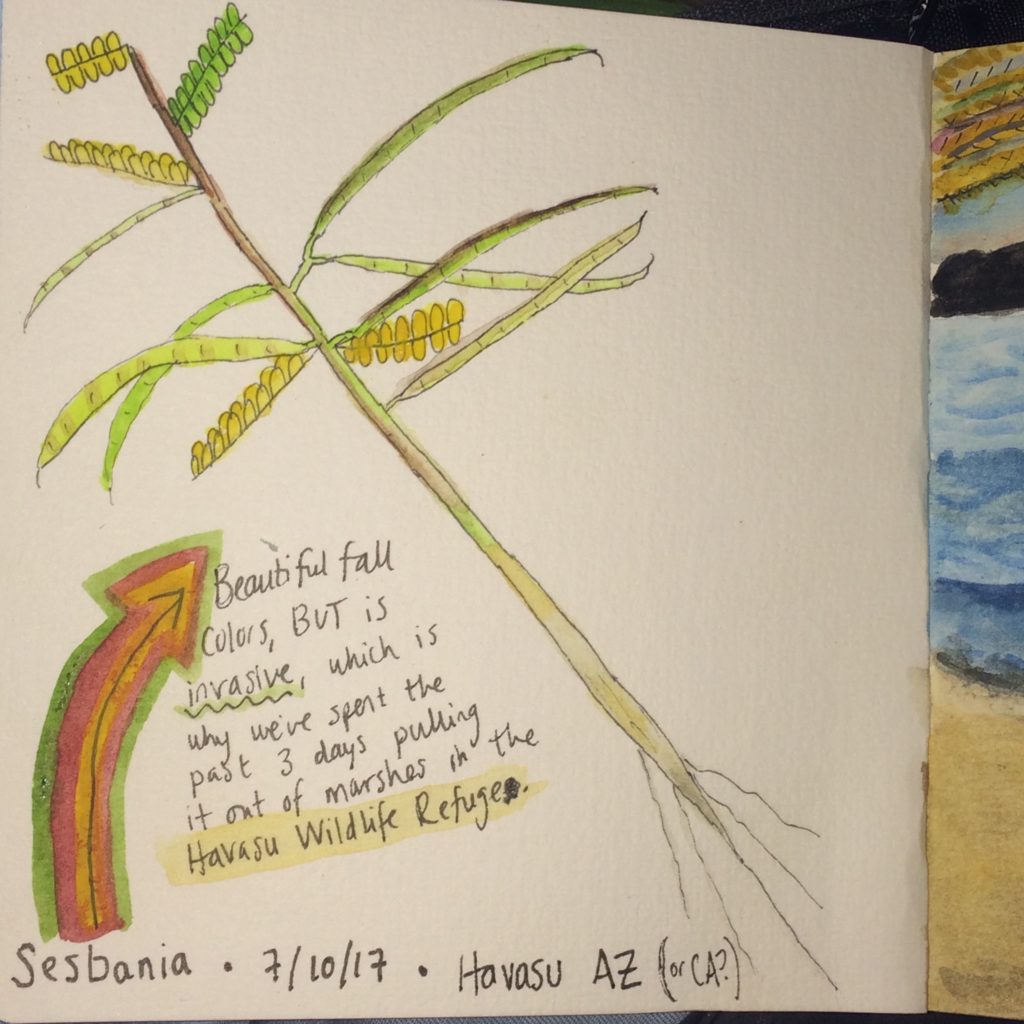 Beautiful fall
colors, BUT is
invasive, which is
why we've spent the
past 3 days pulling
it out of marshes in the
Havasu Wildlife Refuge.
Sesbania • 7/10/17 • Havasu AZ (or CA?)